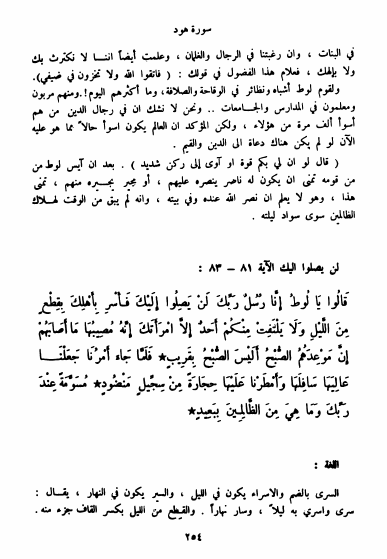 سورة هود
في البنات ، وان رغبتنا في الرجال والغلمان ، وعلمت أيضاً اننا لا نكترث بك
ولا بإلهك ، فعلام هذا الفضول في قولك : ( فاتقوا الله ولا تخزون في ضيفي).
ولقوم لوط أشباه ونظائر في الوقاحة والصلافة، وما أكثرهم اليوم!.ومنهم مربون
ومعلمون في المدارس والجامعات .. ونحن لا نشك ان في رجال الدين من هم
أسوأ ألف مرة من هؤلاء ، ولكن المؤكد ان العالم يكون اسوأ حالاً مما هو عليه
الآن لو لم يكن هناك دعاة الى الدين والقيم .
( قال لو ان لي بكم قوة او آوى إلى ركن شديد ) . بعد ان آيس لوط من
من قومه تمنى ان يكون له ناصر ينصره عليهم ، أو مجير يجيره منهم ، تمنى
هذا ، وهو لا يعلم ان نصر الله عنده وفي بيته ، وانه لم يبق من الوقت لهلاك
الظالمين سوى سواد ليلته .
لن يصلوا اليك الآية ٨١ – ٨٣ :
قَالُوا يَا لُوطُ إِنَّا رُسُلُ رَبِّكَ لَنْ يَصِلُوا إِلَيْكَ فَأَسْرِ بِأَهْلِكَ بِقِطْعٍ
مِنَ اللَّيْلِ وَلَا يَلْتَفِتْ مِنْكُمْ أَحَدٌ إِلَّا امْرَأَتَكَ إِنَّهُ مُصِيبُهَا مَا أَصَابَهُمْ
إِنَّ مَوْعِدَهُمُ الصُّبْحُ أَلَيْسَ الصُّبْحُ بِقَرِيبٍ* فَلَمَّا جَاءَ أَمْرُنَا جَعَلْنَا
عَالِيَهَا سَافِلَهَا وَأَمْطَرْنَا عَلَيْهَا حِجَارَةً مِنْ سِجِّيلٍ مَنْضُودٍ* مُسَوَّمَةً عِنْدَ
رَبِّكَ وَمَا هِيَ مِنَ الظَّالِمِينَ بِبَعِيدٍ*
اللغة :
السرى بالضم والاسراء يكون في الليل ، والسير يكون في النهار ، يقال :
سرى واسري به ليلاً ، وسار نهاراً . والقطع من الليل بكسر القاف جزء منه .
٢٥٤